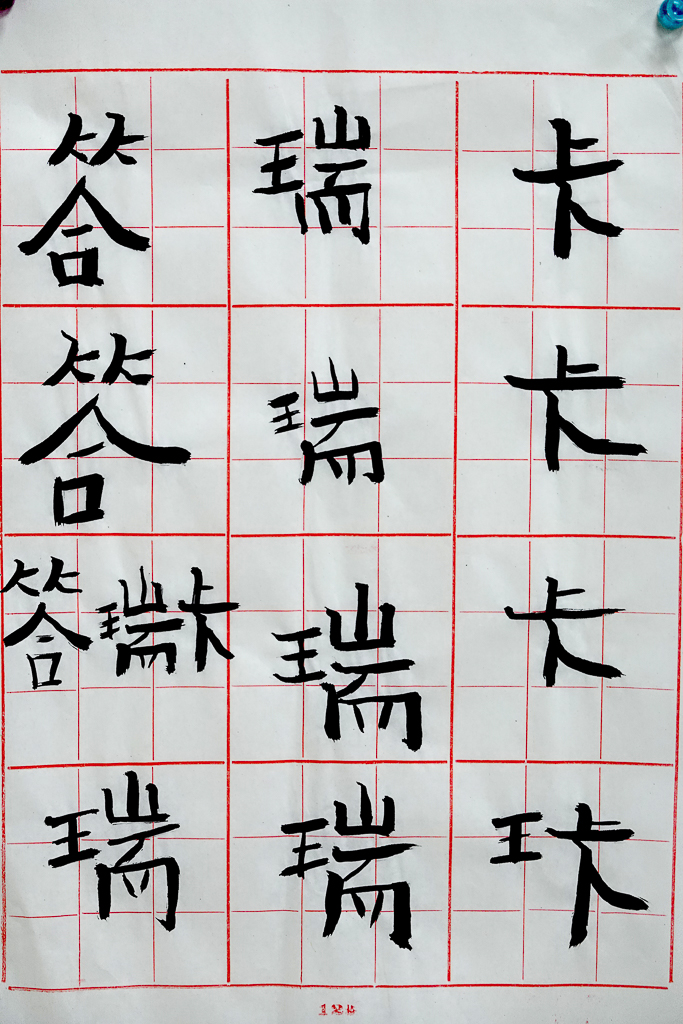 答 瑞 卡
答 瑞 卡
答瑞卡 瑞 卡
瑞 瑞 王卡